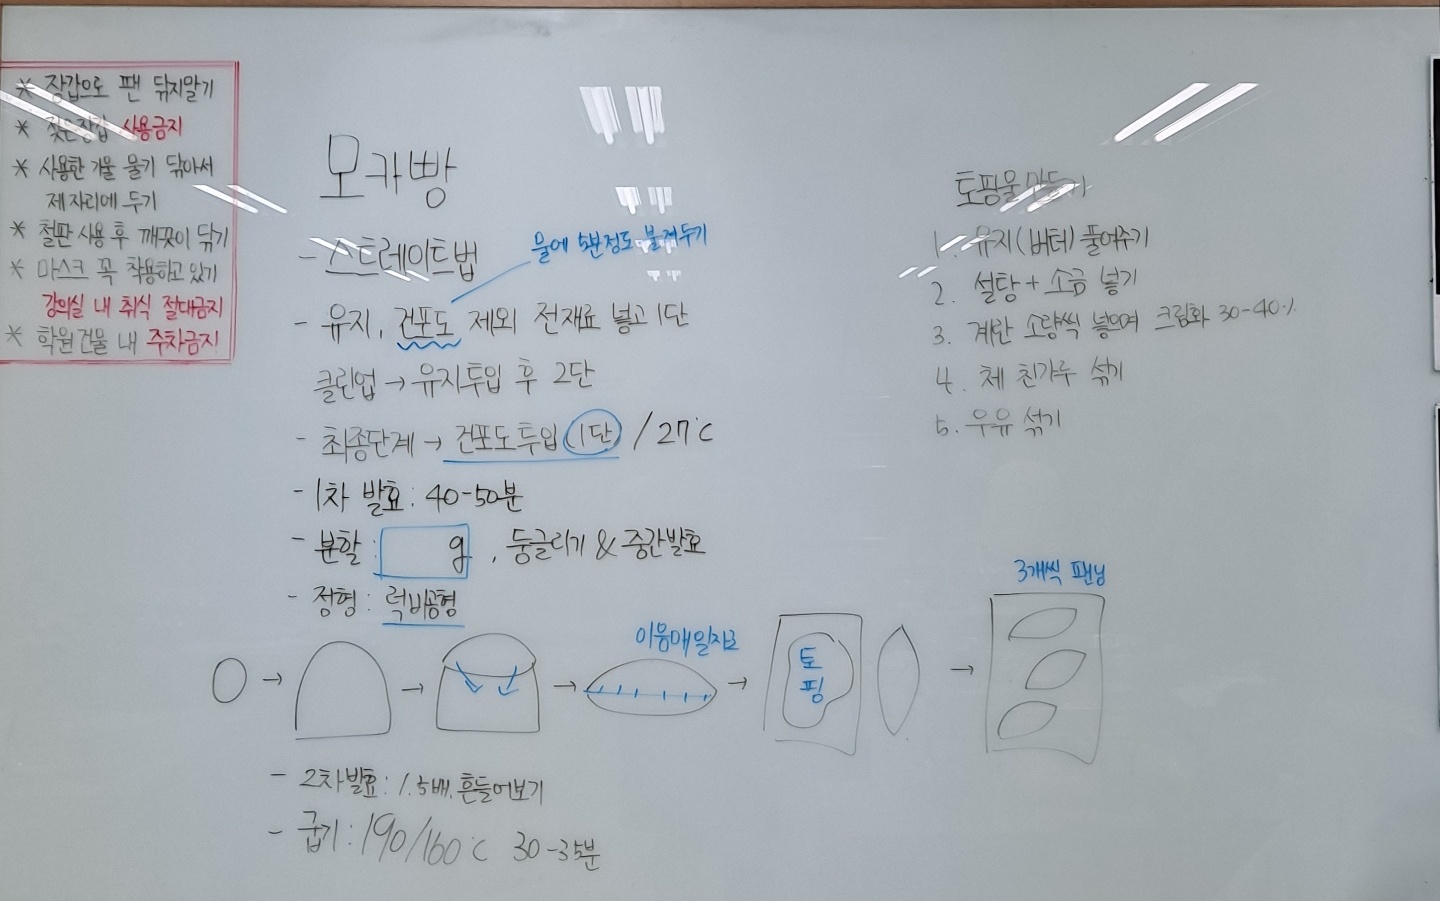 * 장갑으로 팬 닦지말기
* 젖은장갑 사용금지
* 사용한 저울 물기 닦아서
제자리에 두기
* 철판 사용 후 깨끗이 닦기
* 마스크 꼭 착용하고 있기
강의실 내 취식 절대금지
* 학원건물 내 주차금지
모카빵
- 스트레이트법
물에 5분정도 불려두기
- 유지, 건포도 제외 전재료 넣고 1단
클린업 → 유지투입 후 2단
- 최종단계 → 건포도투입 1단 / 27℃
- 1차 발효 : 40-50분
- 분할 : g , 둥글리기 & 중간발효
- 정형 : 럭비공형
이음매일자로
→ → → → →
토
핑
3개씩 팬닝
- 2차발효 : 1.5배, 흔들어보기
- 굽기 : 190/160℃ 30-35분
토핑물 만들기
1. 유지(버터) 풀어주기
2. 설탕 + 소금 넣기
3. 계란 소량씩 넣으며 크림화 30-40%
4. 체 친가루 섞기
5. 우유 섞기